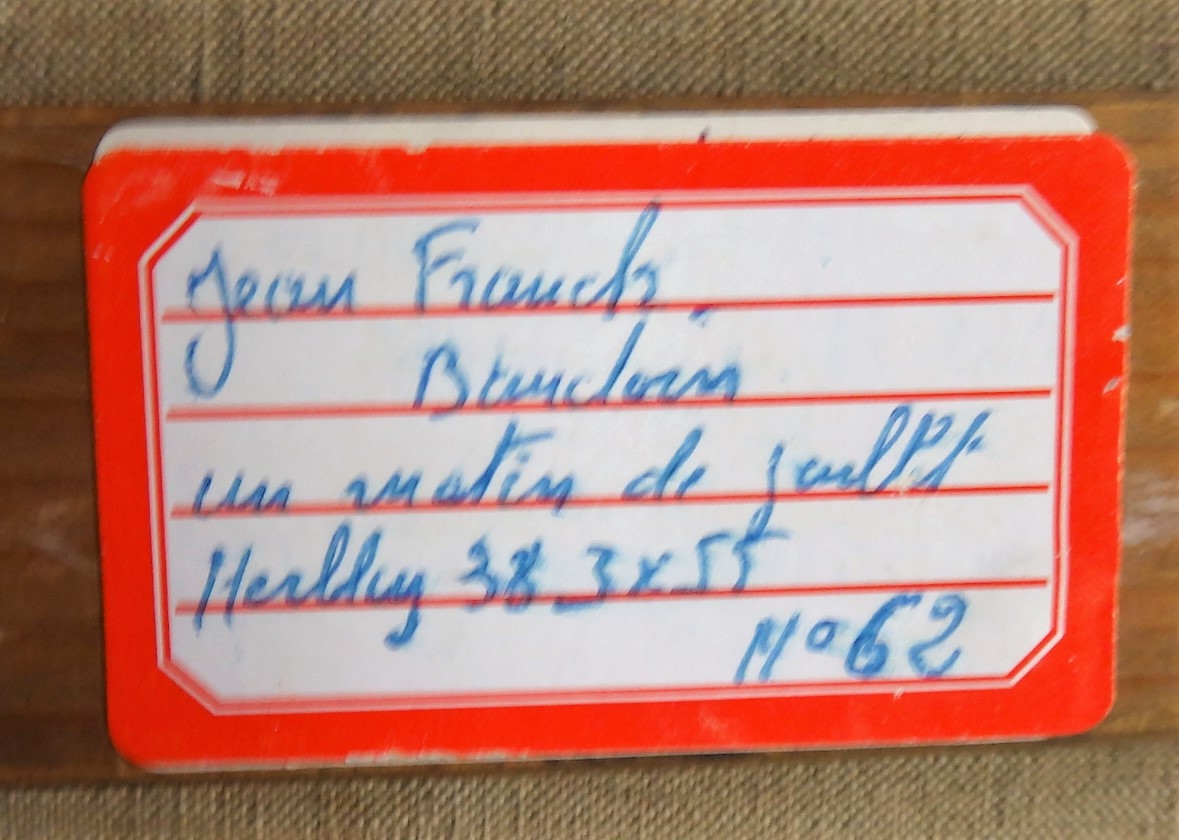 Jean Franck.
Baudoin
un matin de juillet
Herblay 38 3x55
N° 62